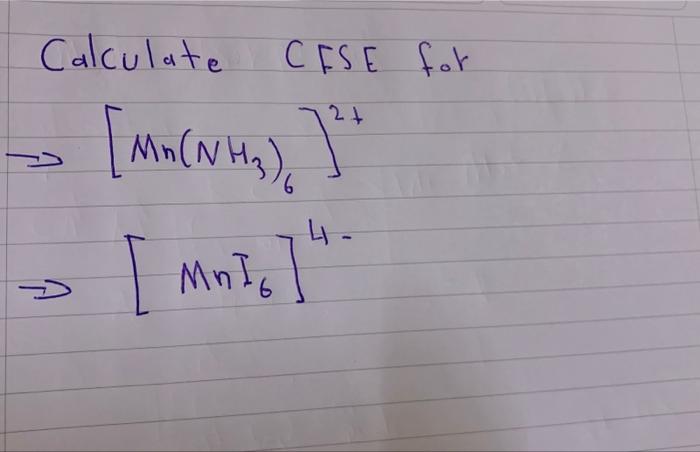 Calculate CFSE for
→ [Mn(NH₃)₆]²⁺
→ [MnI₆]⁴⁻